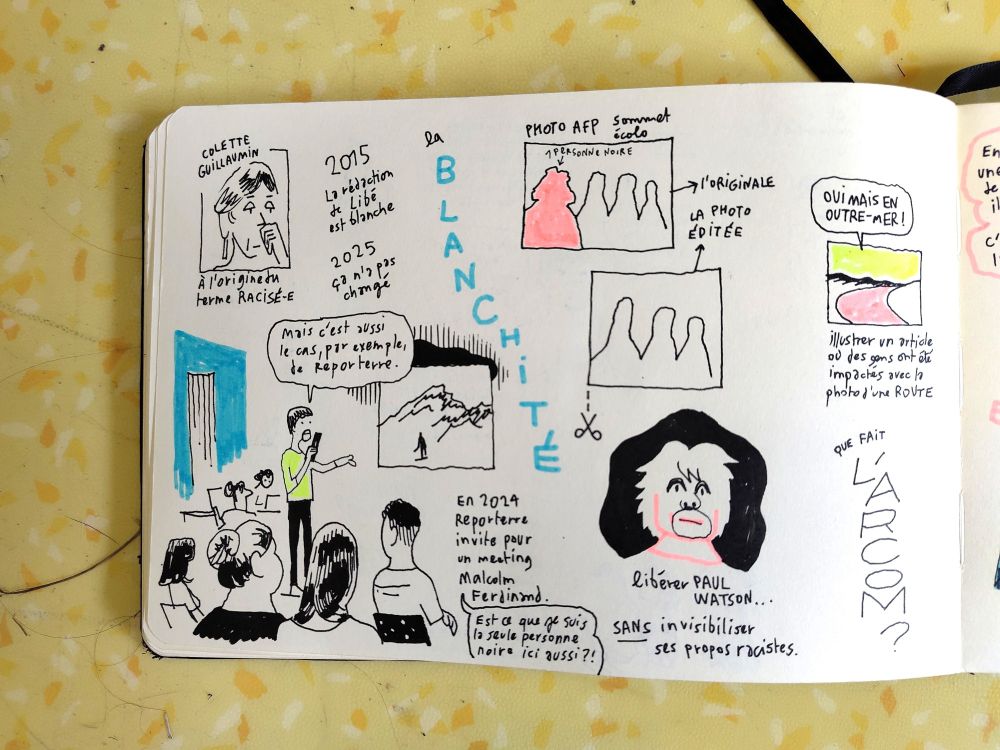 COLETTE
GUILLAUMIN
À l'origine du
terme RACISÉ-E
2015
La rédaction
de Libé
est blanche
2025
ça n'a pas
changé
la
BLANCHITÉ
PHOTO AFP sommet
écolo
1 PERSONNE NOIRE
l'ORIGINALE
LA PHOTO
ÉDITÉE
OUI MAIS EN
OUTRE-MER !
illustrer un article
où des gens ont été
impactés avec la
photo d'une ROUTE
Mais c'est aussi
le cas, par exemple,
de Reporterre.
En 2024
Reporterre
invite pour
un meeting
Malcolm
Ferdinand.
Est ce que je suis
la seule personne
noire ici aussi ?!
libérer PAUL
WATSON...
SANS invisibiliser
ses propos racistes.
QUE FAIT
L'ARCOM ?
En
une
c'